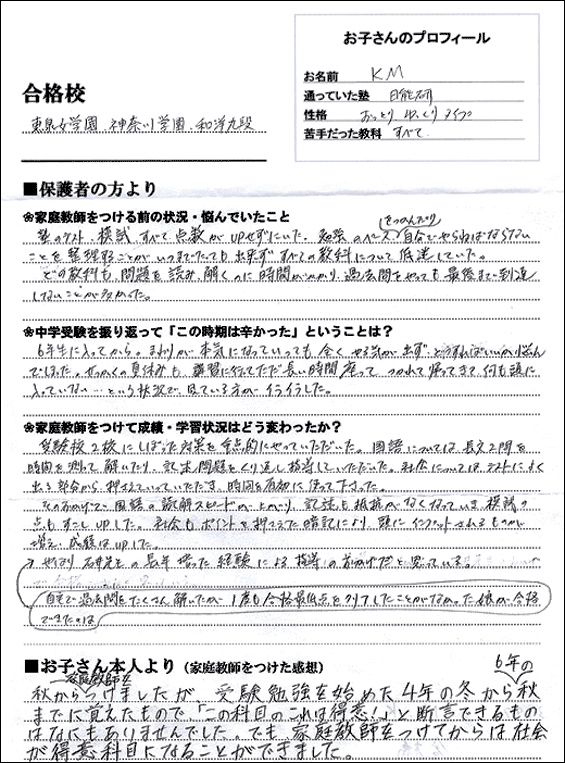 お子さんのプロフィール
お名前 KM
通っていた塾 日能研
性格 おっとり ゆっくりタイプ
苦手だった教科 すべて
合格校
東京女学園、神奈川学園、和洋九段
■保護者の方より
❀家庭教師をつける前の状況・悩んでいたこと
塾のテスト、模試、すべて点数がUPせずにいた。勉強のペースをつかんだり自分でやらねばならない
ことを整理することがいつまでたっても出来ず すべての教科について低迷していた。
どの教科も、問題を読み、解くのに時間がかかり、過去問をやっても最後まで到達
しないことが多かった。
❀中学受験を振り返って「この時期は辛かった」ということは？
6年生に入ってから。まわりが本気になっていっても全くやる気が出ず、どうすればいいか悩ん
でしまった。せっかくの夏休みも、講習に行ってただ長い時間座って、つかれて帰ってきて、何も頭に
入っていない…という状況で、見ている方がイライラした。
❀家庭教師をつけて成績・学習状況はどう変わったか？
受験校2校にしぼった対策を全面的にやっていただいた。国語については長文2問を
時間を測って解いたり、記述問題をくり返し指導していただいた。社会についてはテストによく
出る部分から押さえていっていただき、時間を有効に使って下さった。
そのおかげで国語の読解スピードが上がり、記述も抵抗がなくなっていき 模試の
点もすこしUPした。社会もポイントを押さえた暗記により、頭にインプットされるものが
増え、成績はUPした。
やはり 石井先生の長年培った経験による指導のおかげだと思っている。
自宅で過去問をたくさん解いたが 1度も合格最低点をクリアしたことがなかった娘が合格
できたのは
■お子さん本人より（家庭教師をつけた感想）
秋から家庭教師をつけましたが、受験勉強を始めた4年の冬から6年の秋
までに覚えたもので、「この科目のこれは得意!」と断言できるもの
はなにもありませんでした。でも、家庭教師をつけてからは社会
が得意科目になることができました。